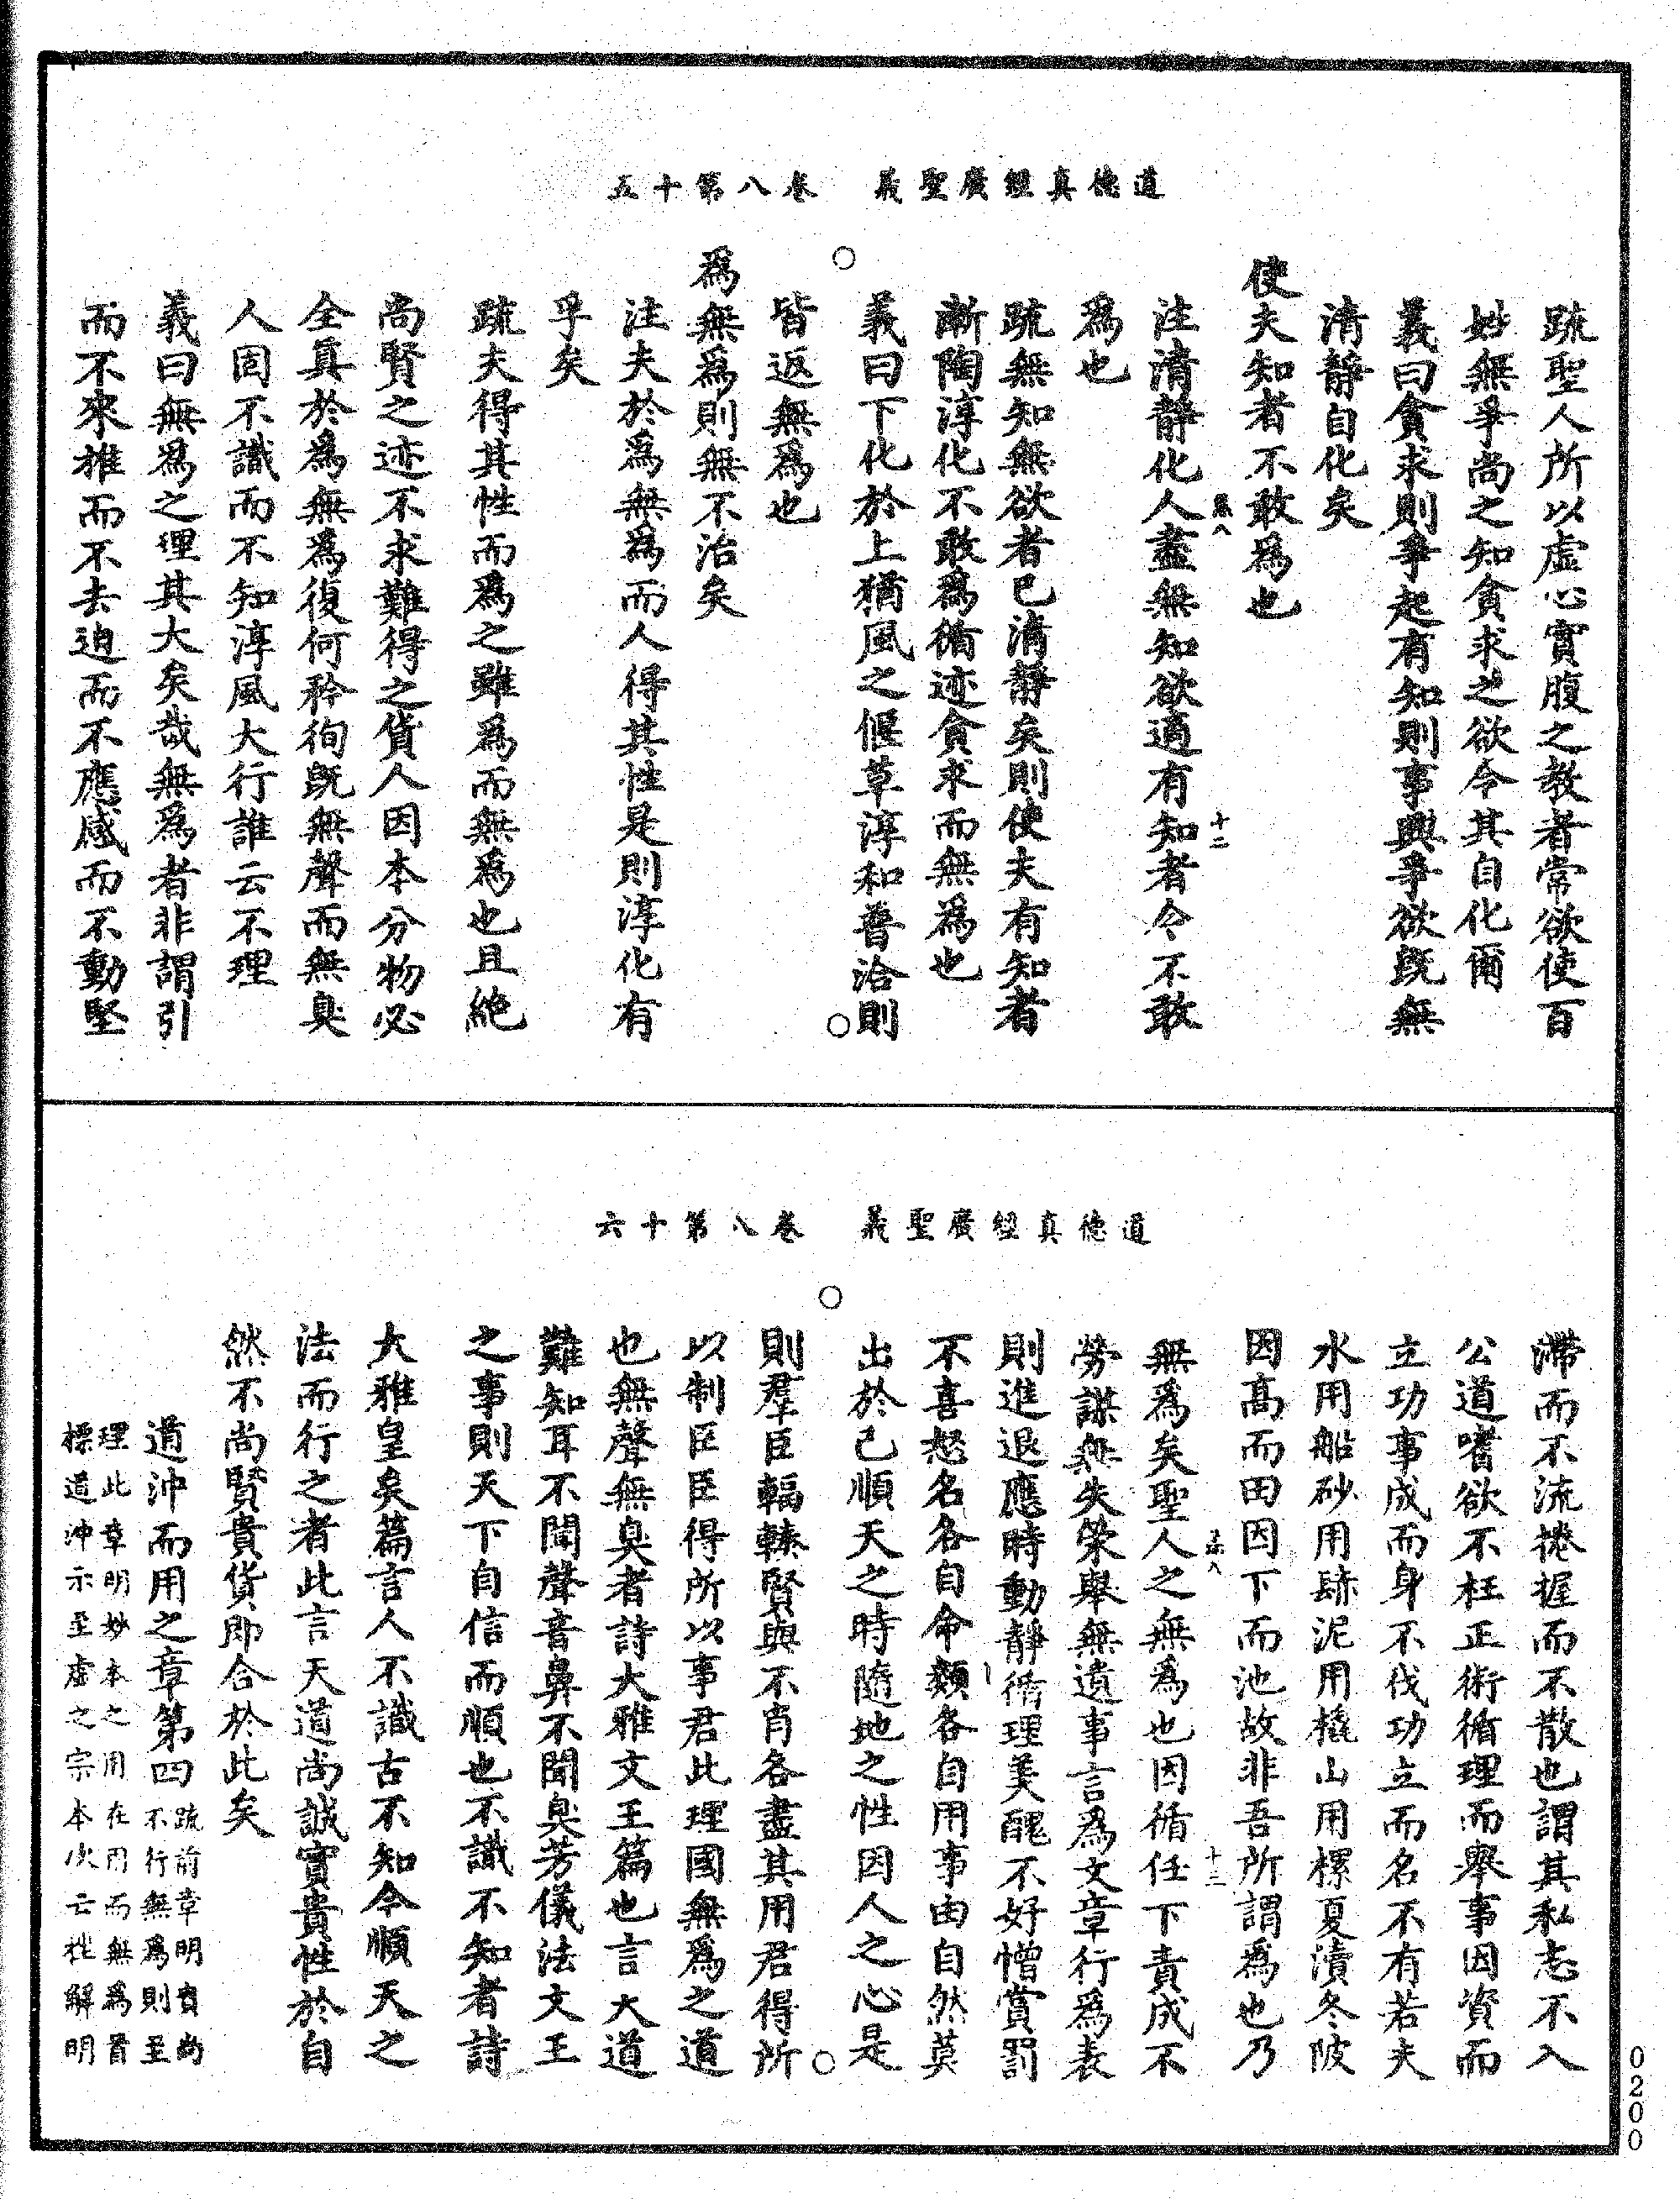 道德真經廣聖義　卷八第十五
疏聖人所以虛心實腹之教者常欲使百
妙無爭尚之知貪求之欲令其自化爾
義曰貪求則爭起有知則事興爭欲旣無
清靜自化矣
使夫知者不敢爲也
注清靜化人盡無知欲適有知者令不敢
爲也
疏無知無欲者已清靜矣則使夫有知者
漸陶淳化不敢爲循迹貪求而無爲也
義曰下化於上猶風之偃草淳和普洽則
皆返無爲也
爲無爲則無不治矣
注夫於爲無爲而人得其性是則淳化有
孚矣
疏夫得其性而爲之雖爲而無爲也且絶
尚賢之迹不求難得之貨人因本分物必
全真於爲無爲復何矜徇旣無聲而無臭
人固不識而不知淳風大行誰云不理
義曰無爲之理其大矣哉無爲者非謂引
而不來推而不去迫而不應感而不動堅
道德真經廣聖義　卷八第十六
滯而不流捲握而不散也謂其私志不入
公道嗜欲不枉正術循理而舉事因資而
立功事成而身不伐功立而名不有若夫
水用船砂用𨁈泥用橇山用樏夏瀆冬陂
因高而田因下而池故非吾所謂爲也乃
無爲矣聖人之無爲也因循任下責成不
勞謀無失策舉無遺事言爲文章行爲表
則進退應時動靜循理美醜不好憎賞罰
不喜怒名各自命類各自用事由自然莫
出於己順天之時隨地之性因人之心是
則羣臣輻輳賢與不肖各盡其用君得所
以制臣臣得所以事君此理國無爲之道
也無聲無臭者詩大雅文王篇也言大道
難知耳不聞聲音鼻不聞臭芳儀法文王
之事則天下自信而順也不識不知者詩
大雅皇矣篇言人不識古不知今順天之
法而行之者此言天道尚誠實貴性於自
然不尚賢貴貨即合於此矣
道沖而用之章第四 疏前章明賢尚
不行無爲則至
理此章明妙本之用在用而無爲首
標道沖示至虛之宗本次云挫解明
0200